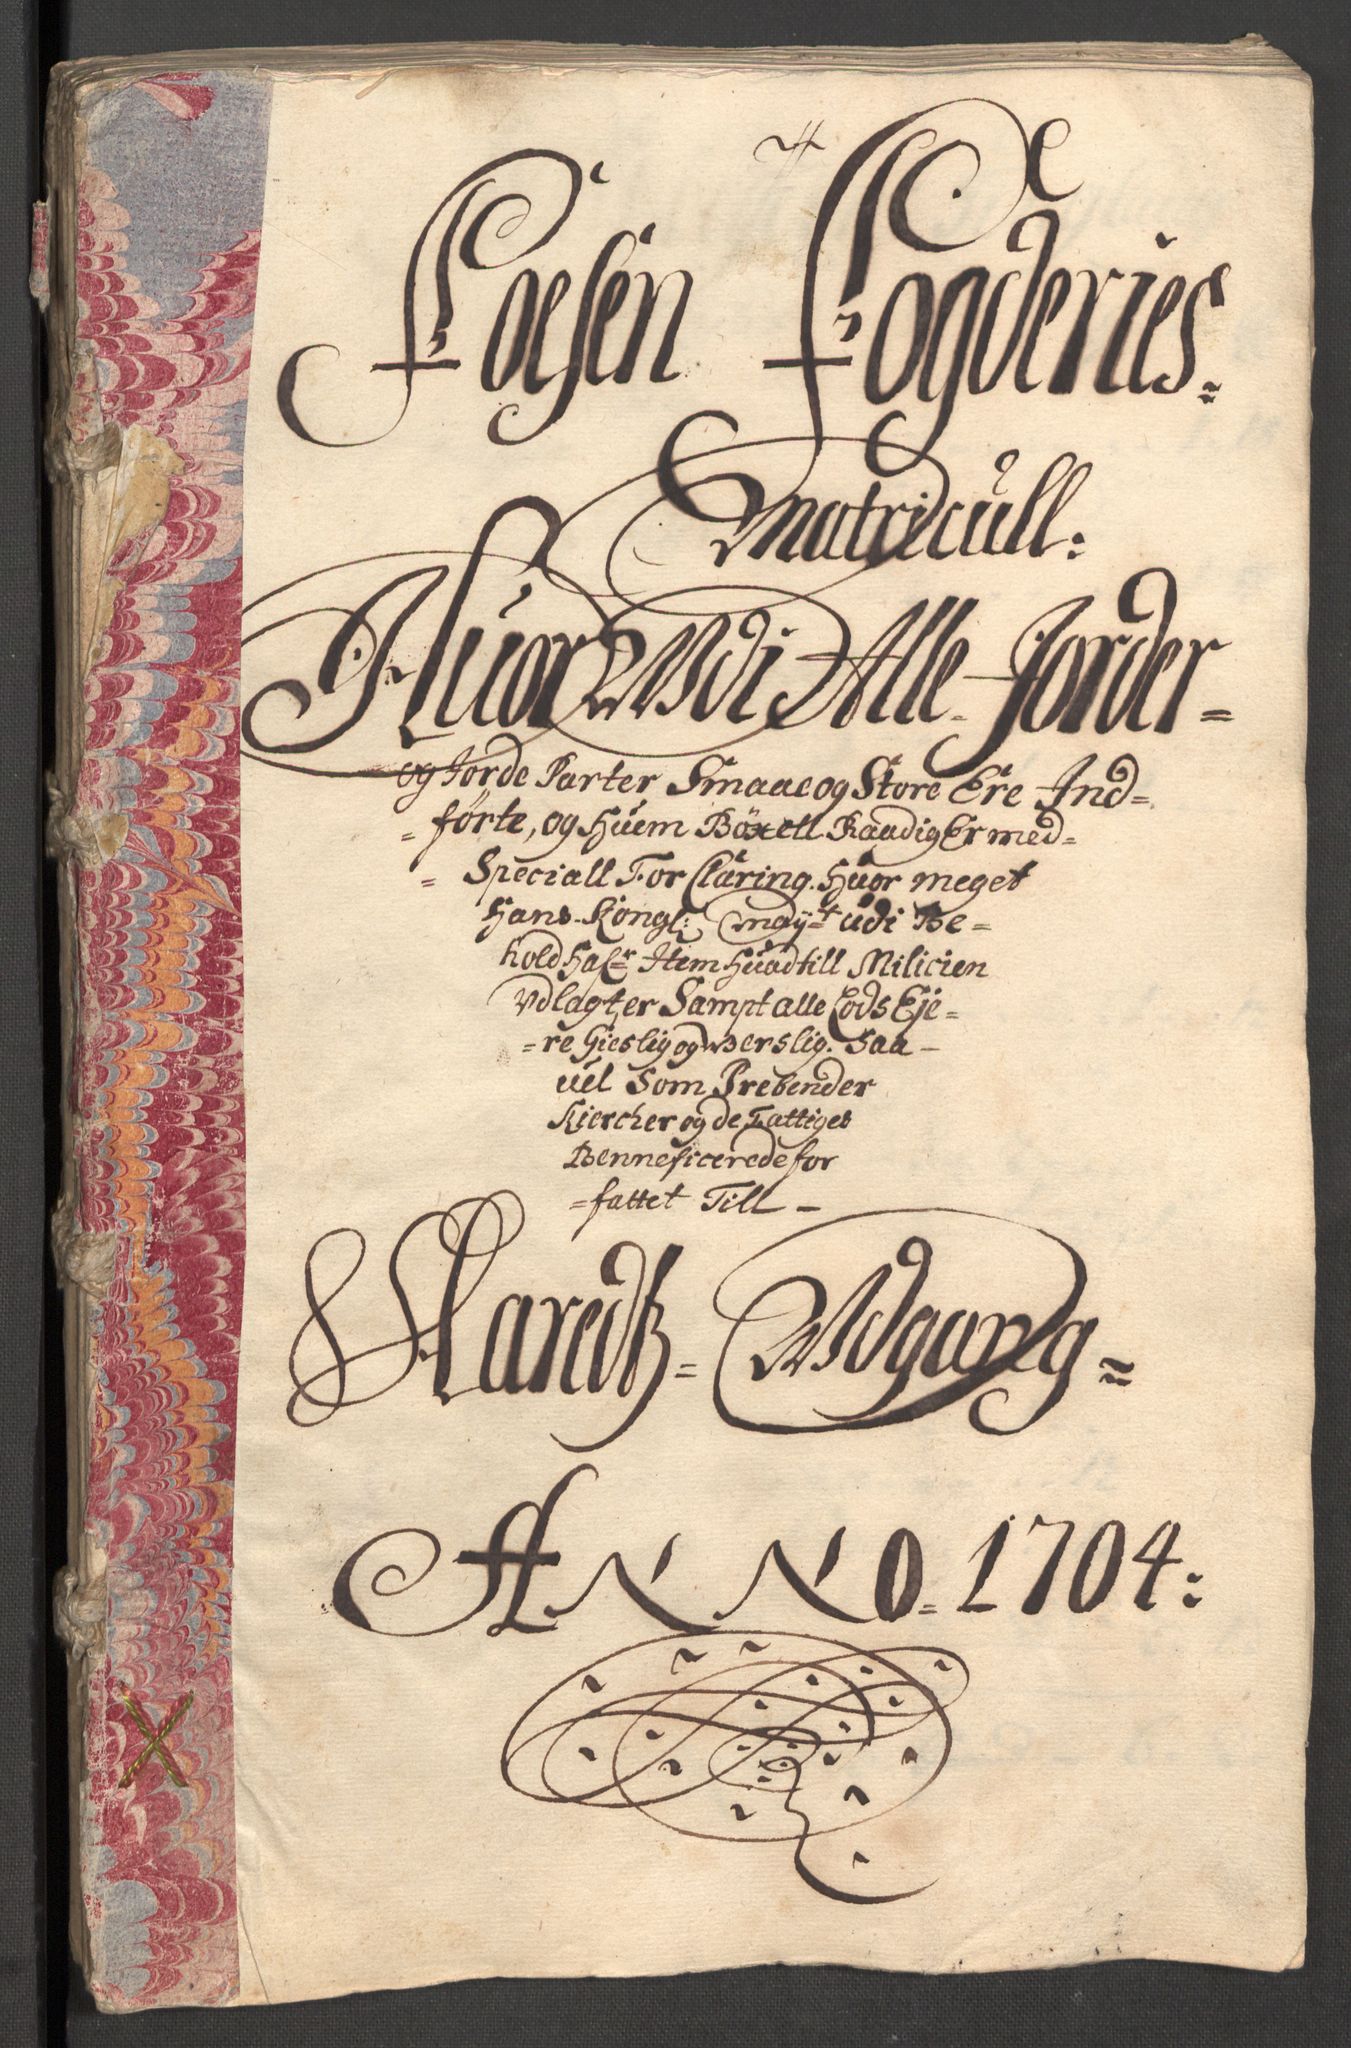 Foesen Fogderies=
Matricull:
Huor Wdi Alle Jorder=
og Jorde Parter Smaae og Store Ere Ind=
=førte, og Huem Böxell Raadig Er med=
=Speciall For Claring. Huor meget
Hans Kongl: May:t udi Be=
hold Hafr Item Huad till Milicien
Vdlagt er Sampt alle Lods Eje=
=re Gieslig og Werslig. Saa=
uel Som Prebender
Kiercher og de Fattiges
Benneficerede for
=fattet Till=
Aaredtz= Wdgang=
ANNO= 1704: